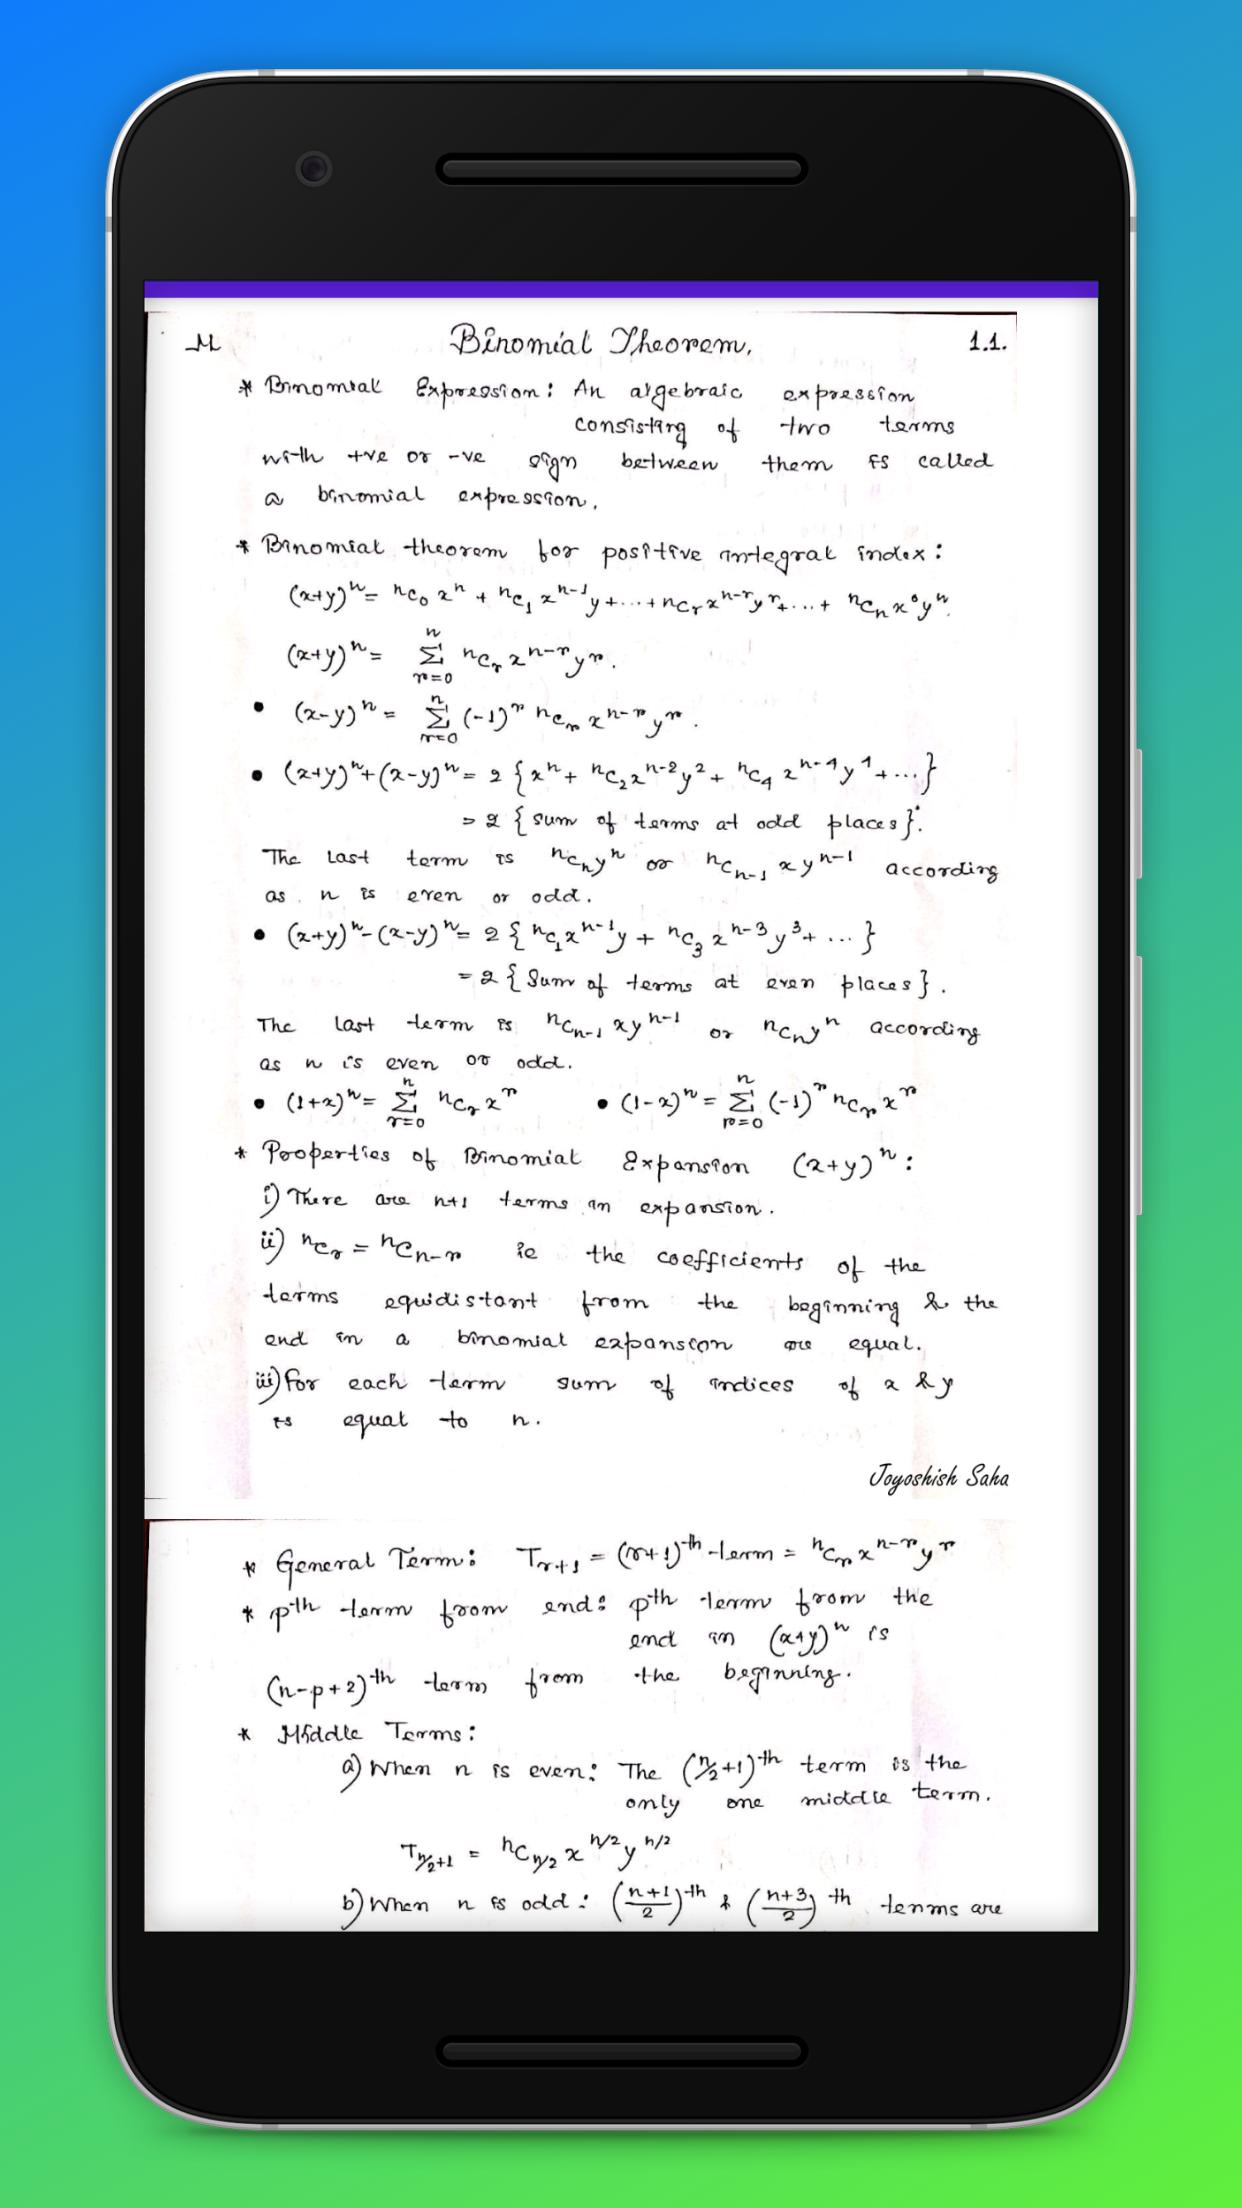 M Binomial Theorem. 1.1.
* Binomial Expression: An algebraic expression
consisting of two terms
with +ve or -ve sign between them is called
a binomial expression.
* Binomial theorem for positive integral index:
(x+y)ⁿ = ⁿC₀ xⁿ + ⁿC₁ xⁿ⁻¹y + ... + ⁿCᵣ xⁿ⁻ʳyʳ + ... + ⁿCₙ x⁰yⁿ.
(x+y)ⁿ = Σ_{r=0}^{n} ⁿCᵣ xⁿ⁻ʳyʳ.
• (x-y)ⁿ = Σ_{r=0}^{n} (-1)ʳ ⁿCᵣ xⁿ⁻ʳyʳ.
• (x+y)ⁿ+(x-y)ⁿ = 2 {xⁿ + ⁿC₂xⁿ⁻²y² + ⁿC₄ xⁿ⁻⁴y⁴ + ...}
= 2 {sum of terms at odd places}.
The last term is ⁿCₙyⁿ or ⁿCₙ₋₁ xyⁿ⁻¹ according
as n is even or odd.
• (x+y)ⁿ-(x-y)ⁿ = 2 {ⁿC₁xⁿ⁻¹y + ⁿC₃ xⁿ⁻³y³ + ...}
= 2 {Sum of terms at even places}.
The last term is ⁿCₙ₋₁ xyⁿ⁻¹ or ⁿCₙyⁿ according
as n is even or odd.
• (1+x)ⁿ = Σ_{r=0}^{n} ⁿCᵣ xʳ • (1-x)ⁿ = Σ_{r=0}^{n} (-1)ʳ ⁿCᵣ xʳ
* Properties of Binomial Expansion (x+y)ⁿ:
i) There are n+1 terms in expansion.
ii) ⁿCᵣ = ⁿCₙ₋ᵣ ie the coefficients of the
terms equidistant from the beginning & the
end in a binomial expansion are equal.
iii) for each term sum of indices of x & y
is equal to n.
Joyoshish Saha
* General Term: Tᵣ₊₁ = (r+1)^th term = ⁿCᵣ xⁿ⁻ʳyʳ
* p^th term from end: p^th term from the
end in (x+y)ⁿ is
(n-p+2)^th term from the beginning.
* Middle Terms:
a) When n is even: The (n/2+1)^th term is the
only one middle term.
T_{n/2+1} = ⁿC_{n/2} x^{n/2} y^{n/2}
b) When n is odd: ((n+1)/2)^th & ((n+3)/2)^th terms are